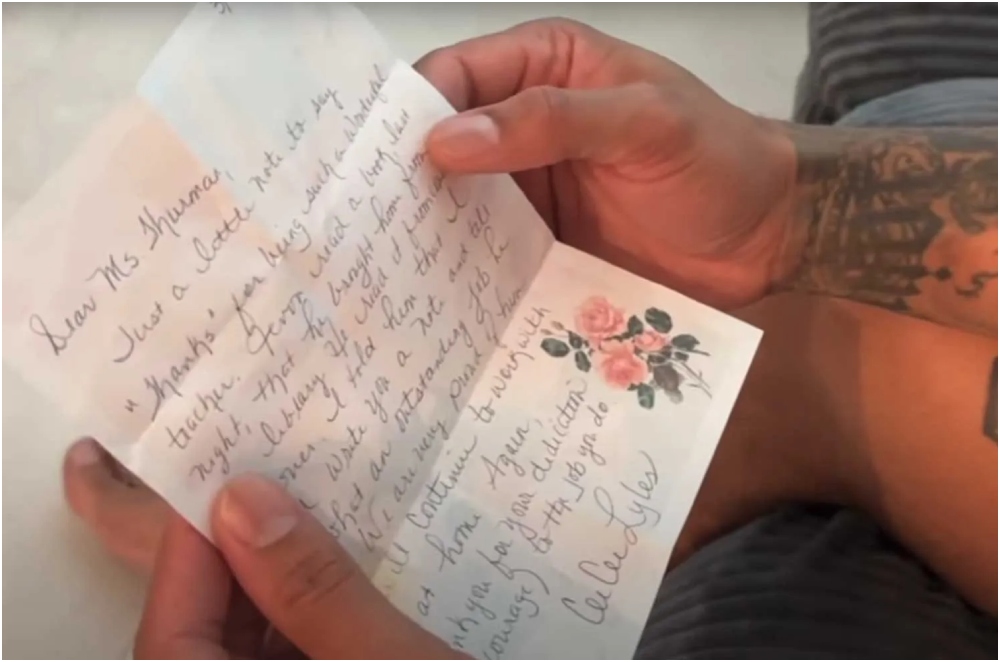 Dear Ms Thurman,
Just a little note to say
"thanks" for being such a wonderful
teacher. read a book last
night, that he brought home from
library. He read it from
I told him that I
write you a note and tell
what an outstanding job he
We are very proud of him
continue to work with
at home Again,
you for your dedication
(courage) to the job you do
CeeCee Lyles